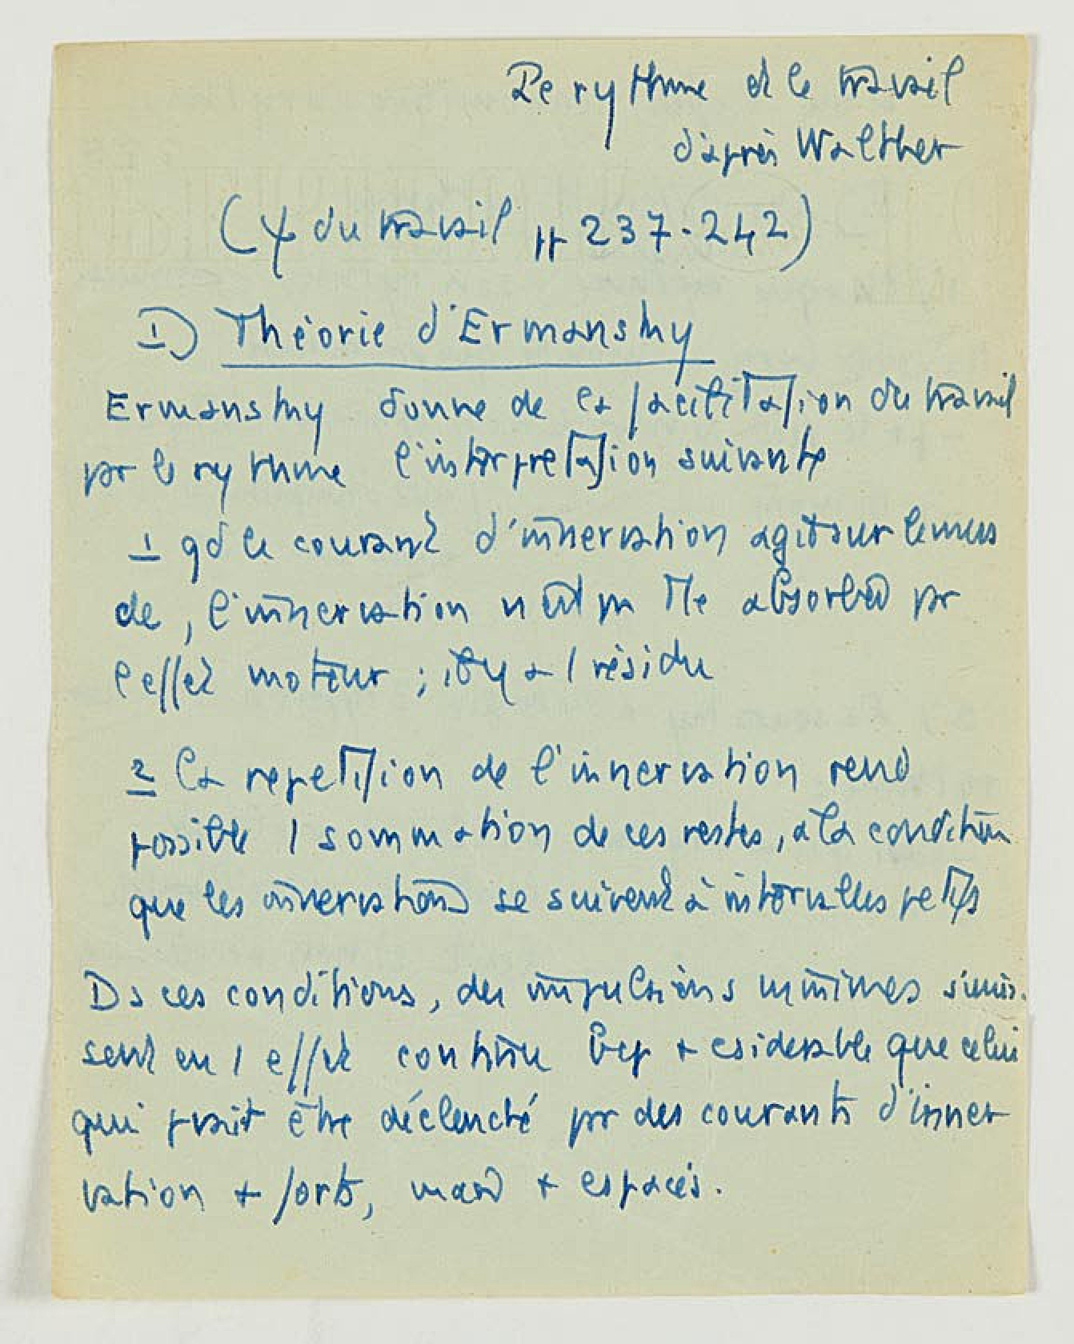 Le rythme et le travail
d'après Walther
(ψ du travail pp 237-242)
I) Théorie d'Ermansky
Ermansky donne de la facilitation du travail
par le rythme l'interpretation suivante
1 qd le courant d'innervation agit sur le mus
cle, l'innervation n'est pas tte absorbée par
l'effet moteur ; il y a 1 résidu
2 la repetition de l'innervation rend
possible 1 sommation de ces restes, à la condition
que les innervations se suivent à intervalles petits
Ds ces conditions, des impulsions minimes s'unis-
sent en 1 effet continu bcp + csiderable que celui
qui prait être déclenché par des courants d'inner
vation + forts, mais + espacés.